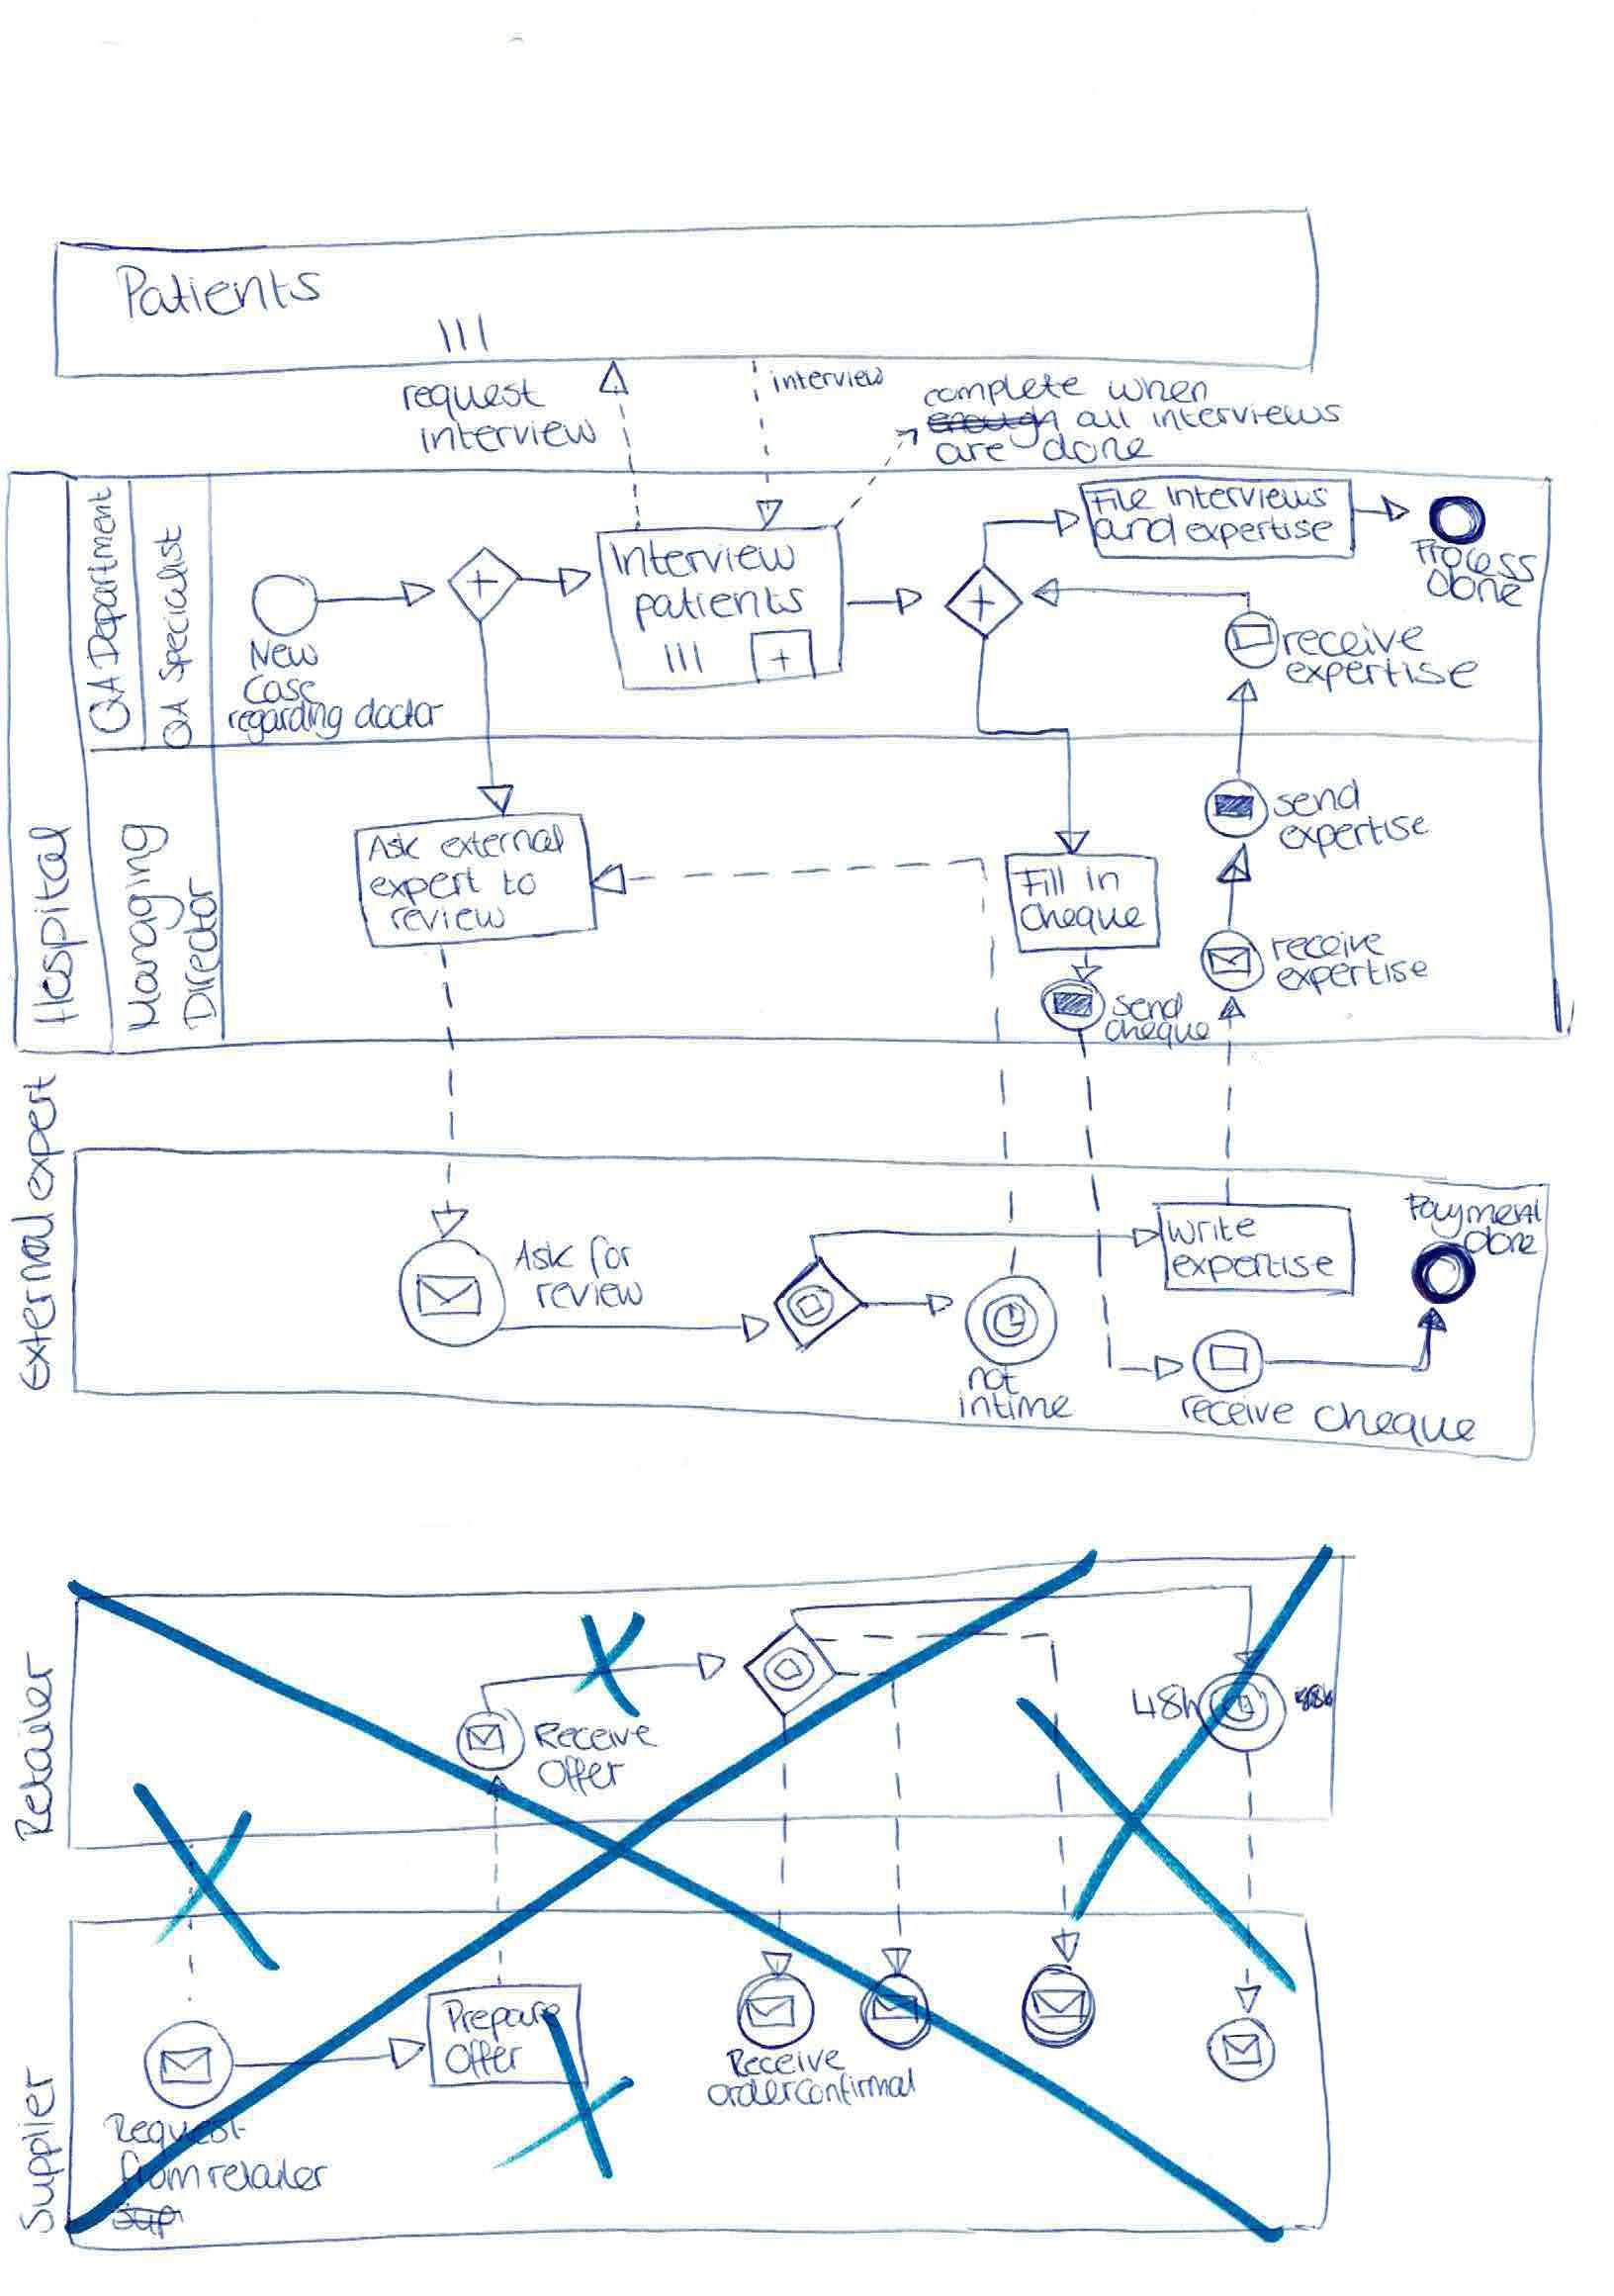 Patients
request
interview
interview
complete when
enough all interviews
are done
Hospital
QA Department
QA Specialist
New
Case
regarding doctor
Interview
patients
File interviews
and expertise
Process
done
receive
expertise
Managing
Director
Ask external
expert to
review
Fill in
Cheque
send
cheque
send
expertise
receive
expertise
External expert
Ask for
review
not
intime
Write
expertise
Payment
done
receive cheque
Retailer
Receive
Offer
48h
Supplier
Request
from retailer
Sup
Prepare
Offer
Receive
orderconfirmal